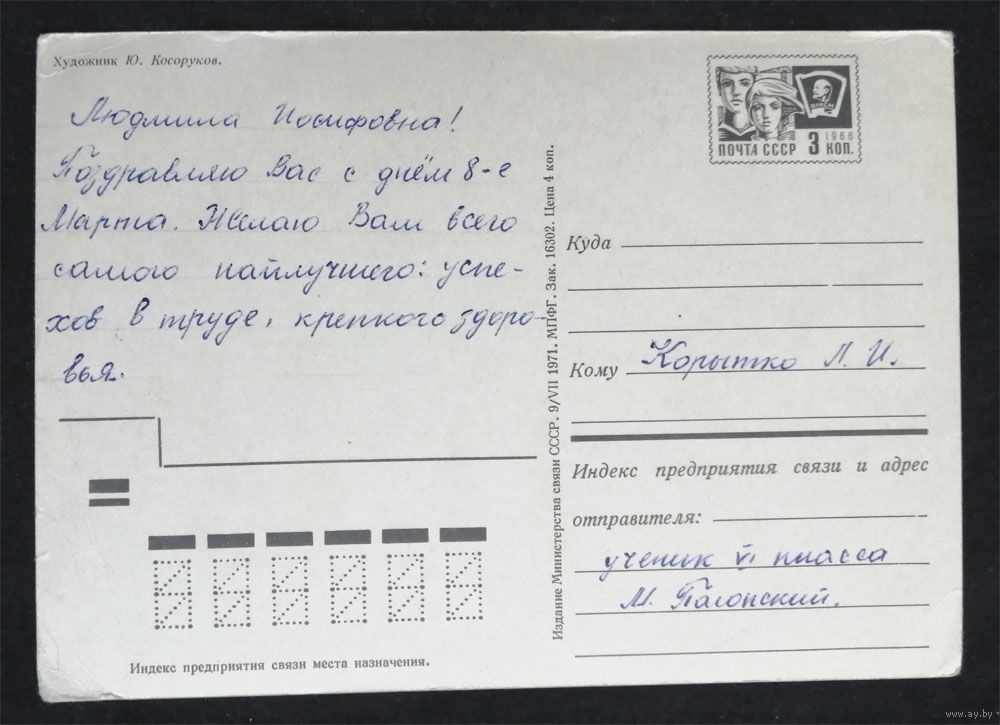 Художник Ю. Косоруков.
Людмила Иосифовна!
Поздравляю Вас с днём 8-е
Марта. Желаю Вам всего
самого наилучшего: успе-
хов в труде, крепкого здоро-
вья.
Индекс предприятия связи места назначения.
Издание Министерства связи СССР. 9/VII 1971. МПФГ. Зак. 16302. Цена 4 коп.
ВЛКСМ
1966
ПОЧТА СССР 3 КОП.
Куда
Кому Корытко Л. И.
Индекс предприятия связи и адрес
отправителя:
ученик VI класса
М.
www.ay.by